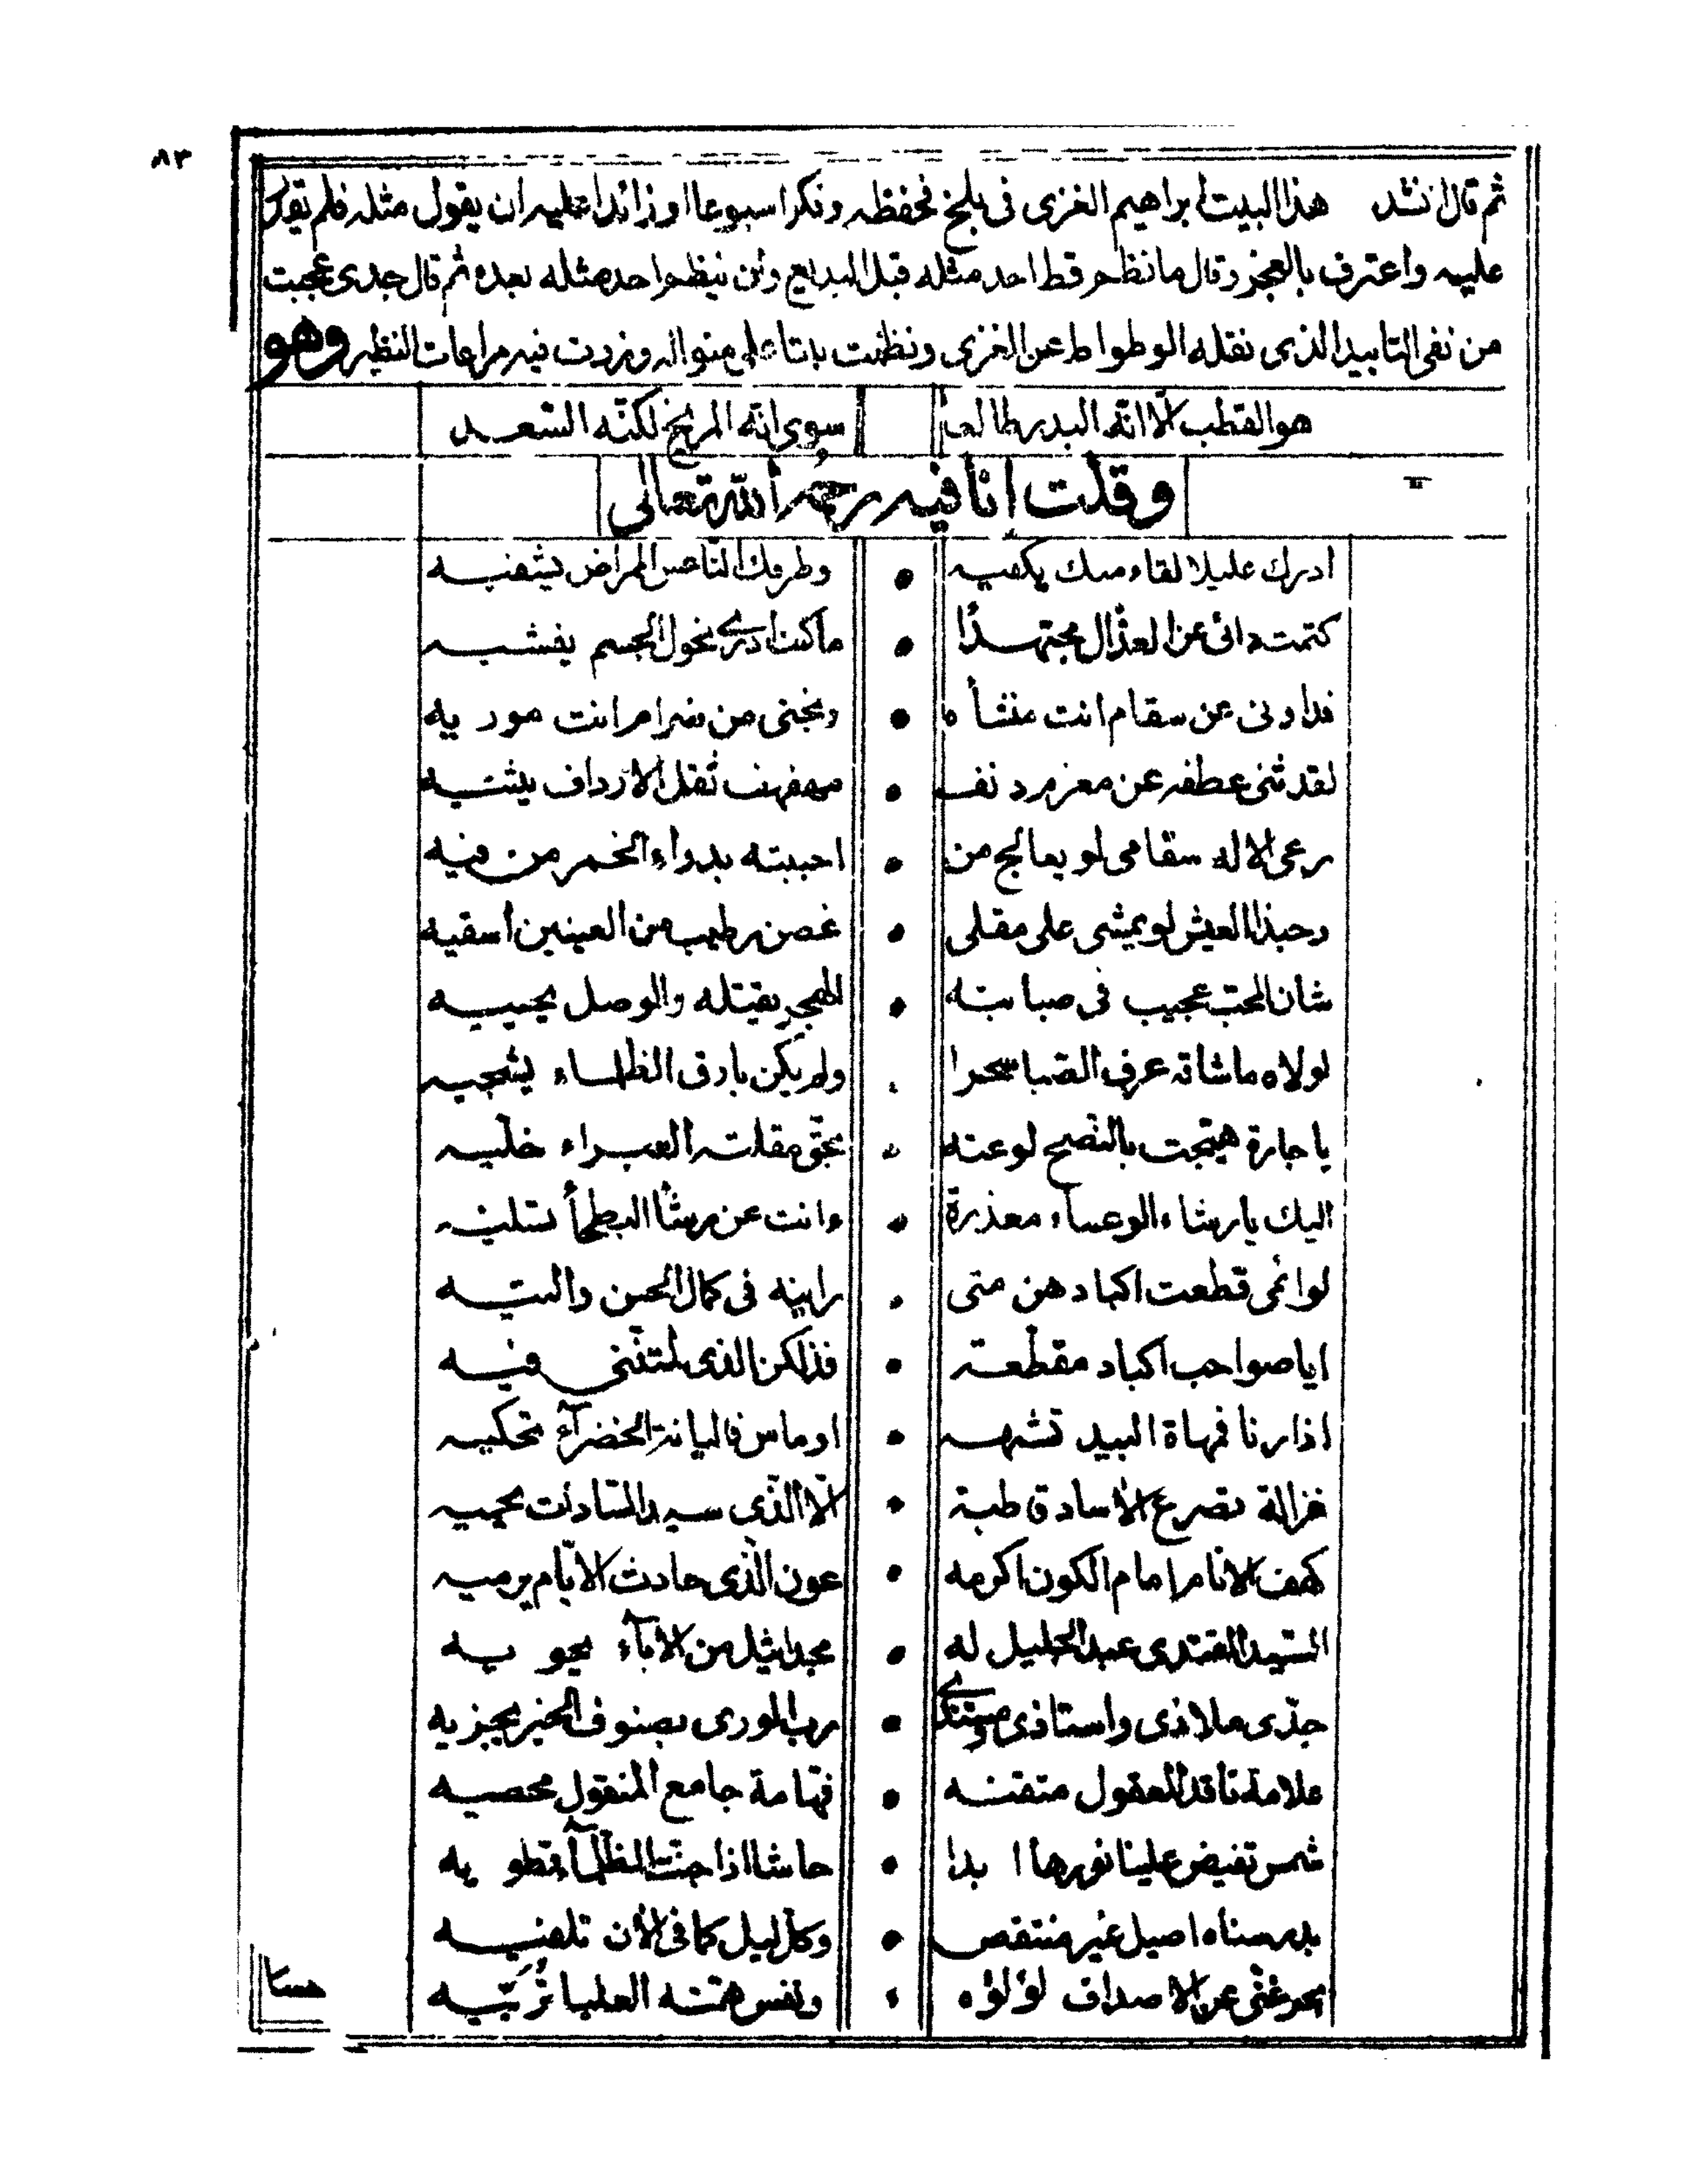 ٨٣
ثم قال انشد هذا البيت ابراهيم الغزى فى بلخ فحفظه وفكر اسبوعا او زائدا عليه ان يقول مثله فلم يقدر
عليه واعترف بالعجز وقال ما نظم قط احد مثله قبل البديع ولن ينظم احد مثله بعده ثم قال جدى عجبت
من نفى التابيد الذى نقله الوطواط عن الغزى ونظمت بيتا على منواله وزدت فيه مراعات النظير وهو
هو القطب الّا انّه البدر طالعا سوى انّه المريخ لكنّه السّعد
وقلت انا فيه رحمه الله تعالى
ادرك عليلا لقاء منك يكفيه • وطرفك النّاعس الممراض يشفيه
كتمت دائى عن العذّال مجتهدًا • ما كنت ادرى نحول الجسم يفشيه
فداونى عن سقام انت منشأه • ونجنى من ضرام انت موريه
لقد ثنى عطفه عن مغرم دنف • مهفهف ثقل الارداف يثنيه
رعى الاله سقامى لو يعالج من • احببته بدواء الخمر من فيه
وحبذا العيش لو يمشى على مقلى • غصن رطيب من العينين أسقيه
شان المحبّ عجيب فى صبابته • الهجر يقتله والوصل يحييه
لولاه ما شاقه عرف الصّبا سحرا • ولم يكن بارق الظلماء يشجيه
يا جارة هيّجت بالنّصح لوعته • بحقّ مقلته العبراء خلّيه
اليك يا رشاء الوعساء معذرة • وانت عن رشأ البطحا تسليه
لوائمى قطعت اكبادهن متى • راينه فى كمال الحسن والتيه
ايا صواحب اكباد مقطّعة • فذلكن الذى لمتنّنى فيه
اذا رنا فمهاة البيد تشبهه • او ماس فالبانة الخضراء تحكيه
غزالة تصرع الاساد قاطبة • الّا الّذى سيد السّادات يحميه
كهف الانام امام الكون اكرمه • عون الّذى حادث الايّام يرميه
السّيد المقتدى عبد الجليل له • مجد اثيل من الاباء يحويه
جدّى ملاذى واستاذى ومستندى • رب الورى بصنوف الخير يجزيه
علامة ناقد المعقول متقنه • فهامة جامع المنقول محصيه
شمس تفيض علينا نورها ابدا • حاشا اذا جنّت الظلماء تطويه
بدر سناه اصيل غير منتقص • وكلّ ليل كما فى الأن تلفيه
بحر غنّى عن الاصداف لؤلؤه • ونفس همّته العليا تُربّيه